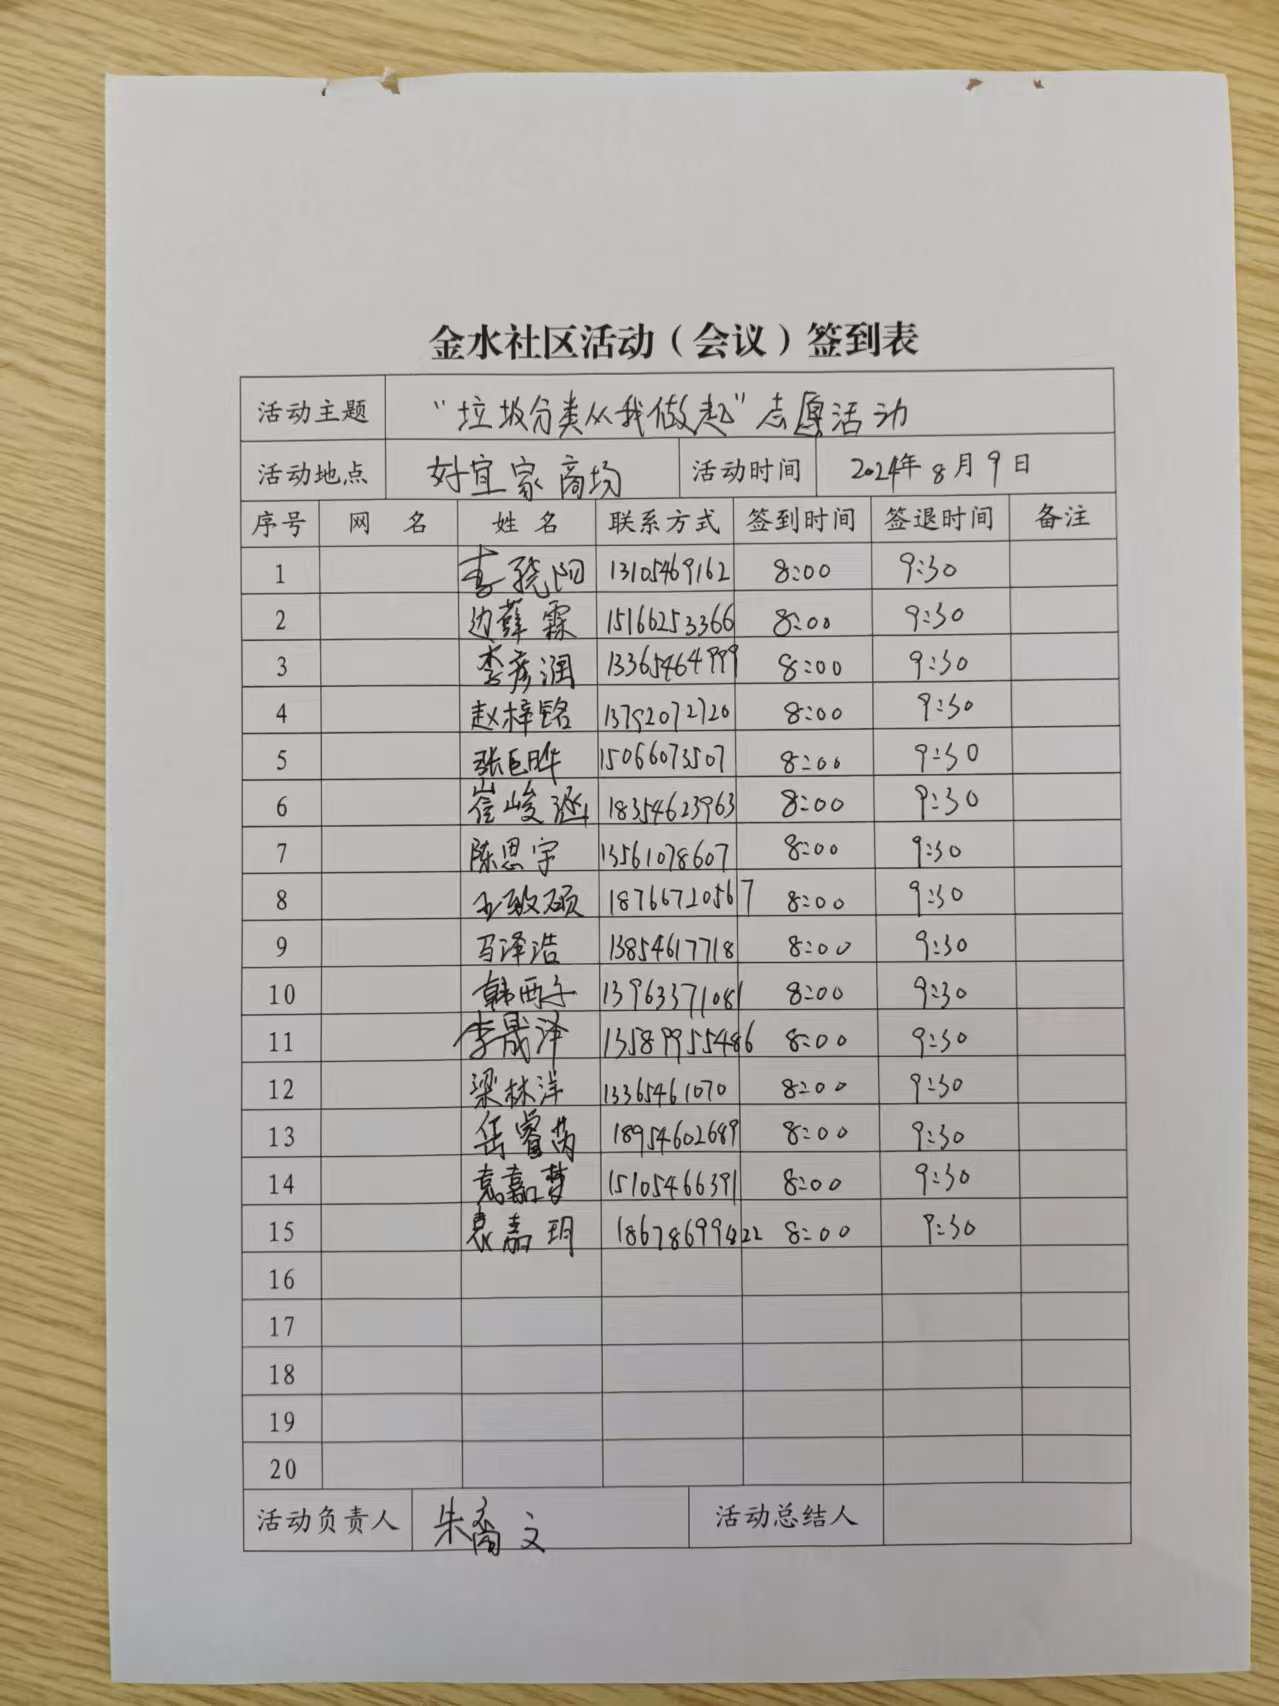 金水社区活动（会议）签到表
活动主题 “垃圾分类从我做起”志愿活动
活动地点 好宜家商场 活动时间 2024年8月9日
序号 网 名 姓 名 联系方式 签到时间 签退时间 备注
1 李骁阳 13105469162 8:00 9:30
2 边薛霖 15166253366 8:00 9:30
3 李彦润 13365464999 8:00 9:30
4 赵梓铭 13792072720 8:00 9:30
5 张巨晔 15066073507 8:00 9:30
6 崔峻涵 18354623963 8:00 9:30
7 陈思宇 13561078607 8:00 9:30
8 王敏硕 18766720567 8:00 9:30
9 马泽浩 13854617718 8:00 9:30
10 韩西子 13963371081 8:00 9:30
11 李晟泽 13589955486 8:00 9:30
12 梁林洋 13365461070 8:00 9:30
13 岳睿芮 18954602689 8:00 9:30
14 袁嘉梦 15105466391 8:00 9:30
15 袁嘉玥 8:00 9:30
16
17
18
19
20
活动负责人 朱文 活动总结人